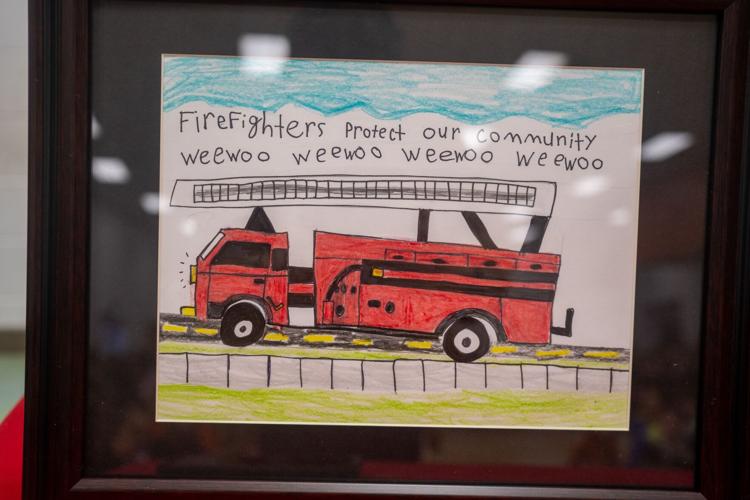 FireFighters Protect our community
weewoo weewoo weewoo weewoo